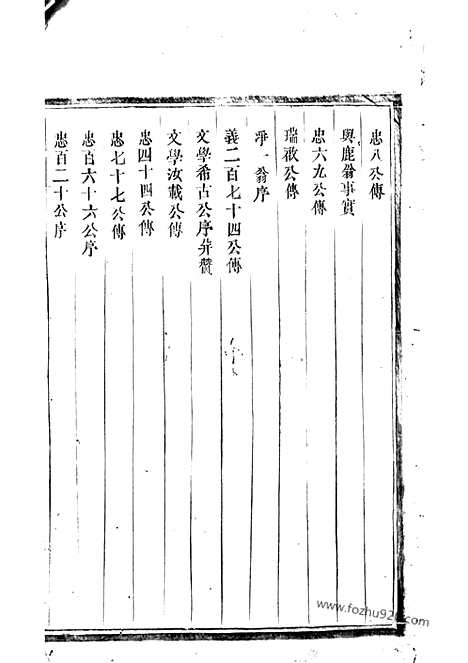 忠八公傳
與鹿翁事實
忠六九公傳
瑞徵公傳
淨一翁序
義二百七十四公傳
文學希古公序并贊
文學汝載公傳
忠四十四公傳
忠七十七公傳
忠百六十六公序
忠百二十公序
www.fozhu920.com